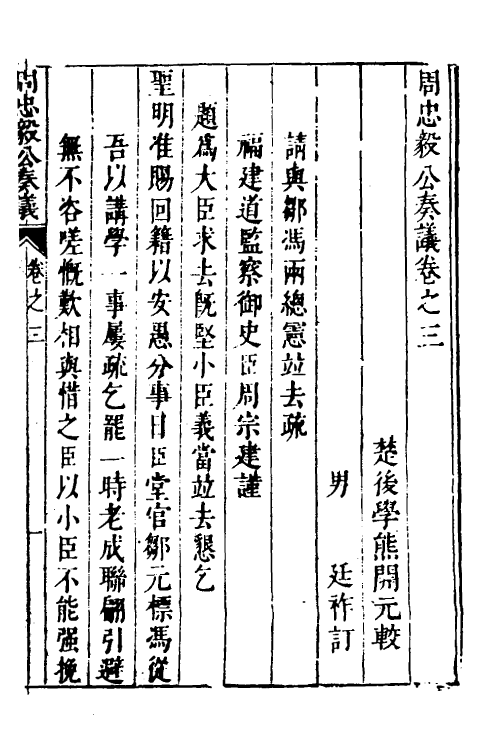 周忠毅公奏議卷之三
楚後學熊開元較
男　廷祚訂
請與鄒馮兩總憲竝去疏
福建道監察御史臣周宗建謹
題爲大臣求去旣堅小臣義當竝去懇乞
聖明准賜回籍以安愚分事日臣堂官鄒元標馮從
吾以講學一事屢疏乞罷一時老成聯翩引避
無不咨嗟慨歎相與惜之臣以小臣不能强挽
周忠毅公奏議　卷之三　一